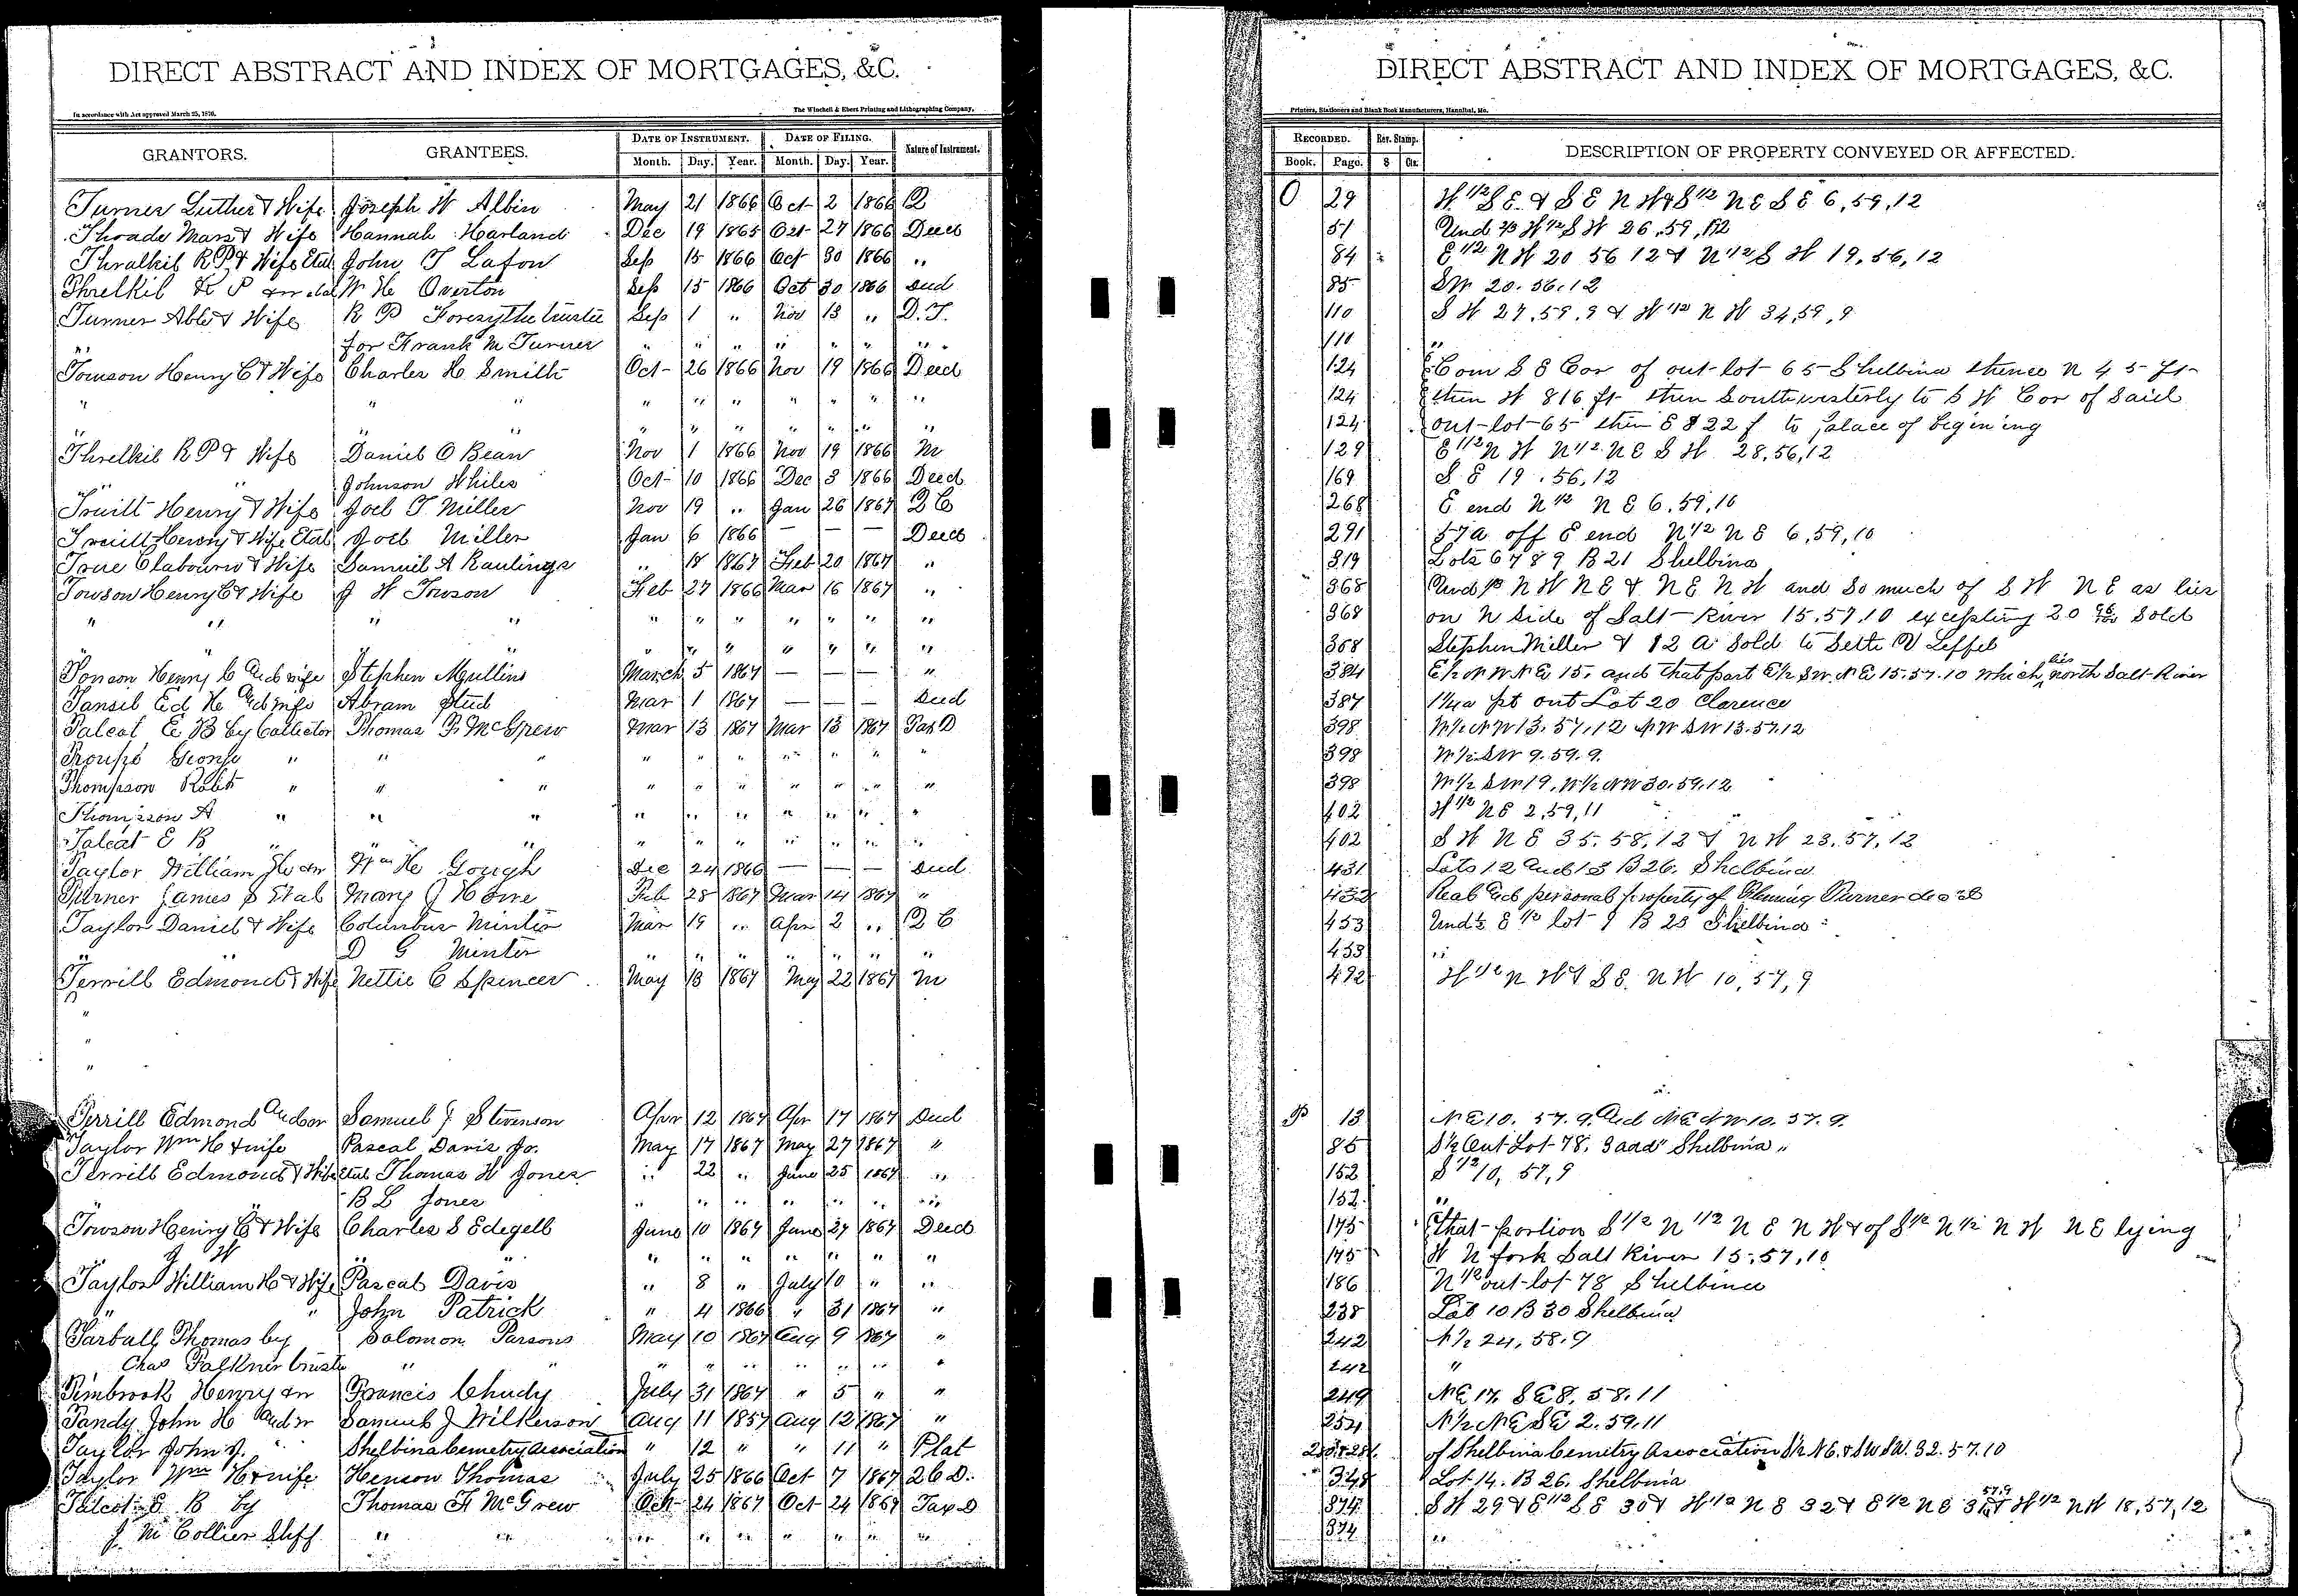 DIRECT ABSTRACT AND INDEX OF MORTGAGES, &C.
In accordance with Act approved March 25, 1870.
The Winchell & Ebert Printing and Lithographing Company,
GRANTORS. GRANTEES. DATE OF INSTRUMENT. DATE OF FILING. Nature of Instrument.
Month. Day. Year. Month. Day. Year.
Turner Luther & Wife Joseph W Albin May 21 1866 Oct 2 1866 D
Wife Hannah Harland Dec 19 1865 Oct 27 1866 Deed
Thralkil R P & Wife Etal John T Lafon Sep 15 1866 Oct 30 1866 "
Threlkil R P W H Overton Sep 15 1866 Oct 30 1866 Deed
Turner Able & Wife R P Foresythe trustee Sep 1 " Nov 13 " D.T.
" for Frank M Turner " " " " " " "
Towson Henry C & Wife Charles H Smith Oct 26 1866 Nov 19 1866 Deed
" " " " " " " " " "
" " " " " " " " " "
Threlkil R P & Wife Daniel O Bean Nov 1 1866 Nov 19 1866 M
" " Johnson Whiles Oct 10 1866 Dec 3 1866 Deed
Truitt Henry & Wife Joel T Miller Nov 19 " Jan 26 1867 Q C
Truitt Henry & Wife Etal Joel Miller Jan 6 1866 — — — Deed
True Clabourn & Wife Samuel A Raulings " 18 1867 Feb 20 1867 "
Towson Henry C & Wife J W Towson Feb 27 1866 Mar 16 1867 "
" " " " " " " " " " "
" " " " " " " " " "
Towson Henry C And wife Stephen Mullins March 5 1867 — — — "
Tansil Ed H And wife Abram Mar 1 1867 — — — Deed
Talcot E B by Collector Thomas F. McGrew Mar 13 1867 Mar 13 1867 Tax D
Troupe George " " " " " " " " " "
Thompson Robt " " " " " " " " " "
Thomsson A " " " " " " " " " "
Talcat E B " " " " " " " " " "
Taylor William H Wm H Gough Dec 24 1866 — — — Deed
Turner James S Etal Mary J Hone Feb 28 1867 Mar 14 1867 "
Taylor Daniel & Wife Columbus Minter Mar 19 " Apr 2 " Q C
" D G Minter " " " " " " "
Terrill Edmond & Wife Nettie C Spencer May 13 1867 May 22 1867 M
"
"
"
Terrill Edmond And or Samuel J Stevenson Apr 12 1867 Apr 17 1867 Deed
Taylor Wm H & wife Pascal Davis Jr. May 17 1867 May 27 1867 "
Terrill Edmond & Wife Etal Thomas W Jones " 22 " June 25 1867 "
" B L Jones " " " " " " "
Towson Henry C & Wife Charles S Edegell June 10 1867 June 27 1867 Deed
" J W " " " " " " " " "
Taylor William H & Wife Pascal Davis " 8 " July 10 " "
" " John Patrick " 4 1866 " 31 1867 "
Tarball Thomas by Solomon Parsons May 10 1867 Aug 9 1867 "
Chas Falkner truste " " " " " " " " "
Timbrook Henry Francis Chudy July 31 1867 " 5 " "
Tandy John H Samuel J Wilkerson Aug 11 1857 Aug 12 1867 "
Taylor John J. Shelbina Cemetry Association " 12 " " 11 " Plat
Taylor Wm H & wife Henson Thomas July 25 1866 Oct 7 1867 Q C D.
Talcot E B by Thomas F McGrew Oct 24 1867 Oct 24 1867 Tax D
J. M Collier Shff " " " " " " " " "
DIRECT ABSTRACT AND INDEX OF MORTGAGES, &C.
Printers, Stationers and Blank Book Manufacturers, Hannibal, Mo.
RECORDED. Rev. Stamp. DESCRIPTION OF PROPERTY CONVEYED OR AFFECTED.
Book. Page. $ Cts.
O 29 W 1/2 S E & S E N W & S 1/2 N E S E 6, 59, 12
51 Und W 1/2 S W 26, 59, 12
84 E 1/2 N W 20 56 12 & N 1/2 S W 19, 56, 12
85 SW 20. 56. 12
110 S W 27, 59, 9 & W 1/2 N W 34, 59, 9
110 "
124 Com S E Cor of out-lot 65 Shelbina thence N 45 ft
124 then W 816 ft then Southwesterly to S W Cor of Said
124 out-lot 65 then E 822 f to palace of begining
129 E 1/2 N W N 1/2 N E S W 28, 56, 12
169 S E 19, 56, 12
268 E end N 1/2 N E 6, 59, 10
291 57a off E end N 1/2 N E 6, 59, 10
319 Lots 6 7 8 9 B 21 Shelbina
368 Und N W N E & N E N W and So much of S W N E as lies
368 on N Side of Salt River 15, 57, 10 excepting 20 Sold
368 Stephen Miller & 12 A Sold to Sette V Leffel
384 E 1/2 N W N E 15. and that part E 1/2 S W. N E 15. 57. 10 which lies north Salt River
387 1 1/4 a pt out Lot 20 Clarence
398 W 1/2 N W 13. 57. 12 N W S W 13. 57. 12
398 W 1/2 S W 9. 59. 9.
398 W 1/2 S W 19, N 1/2 N W 30. 59. 12
402 W 1/2 N E 2, 59, 11
402 S W N E 35, 58, 12 & N W 23, 57, 12
431 Lots 12 And 13 B 26. Shelbina
432 Real And personal property of Fleming Turner decd
453 Und 1/2 E 1/2 lot 9 B 23 Shelbina
453 "
492 W 1/2 N W & S E. N W 10, 57, 9
P 13 N E 10. 57. 9. And N E N W 10. 57. 9.
85 S 1/2 Out Lot 78. 3 add Shelbina "
152 S 1/2 10, 57, 9
152 "
175 that portion S 1/2 N 1/2 N E N W & of S 1/2 N 1/2 N W N E lying
175 W N fork Salt River 15, 57, 10
186 N 1/2 out-lot 78 Shelbina
238 Lot 10 B 30 Shelbina
242 N 1/2 24, 58. 9
242 "
249 N E 17, S E 8, 58. 11
254 N 1/2 N E S E 2. 59. 11
of Shelbina Cemetry Asocociation S 1/2 N E. & S W S W. 32. 57. 10
348 Lot 14. B 26. Shelbina
374 S W 29 & E 1/2 S E 30 & W 1/2 N E 32 & E 1/2 N E 57, 9 & W 1/2 N W 18, 57, 12
374 "